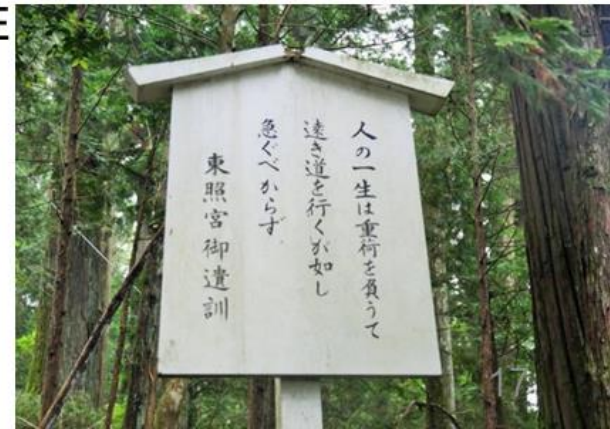 E
人の一生は重荷を負うて
遠き道を行くが如し
急ぐべからず
東照宮御遺訓
17